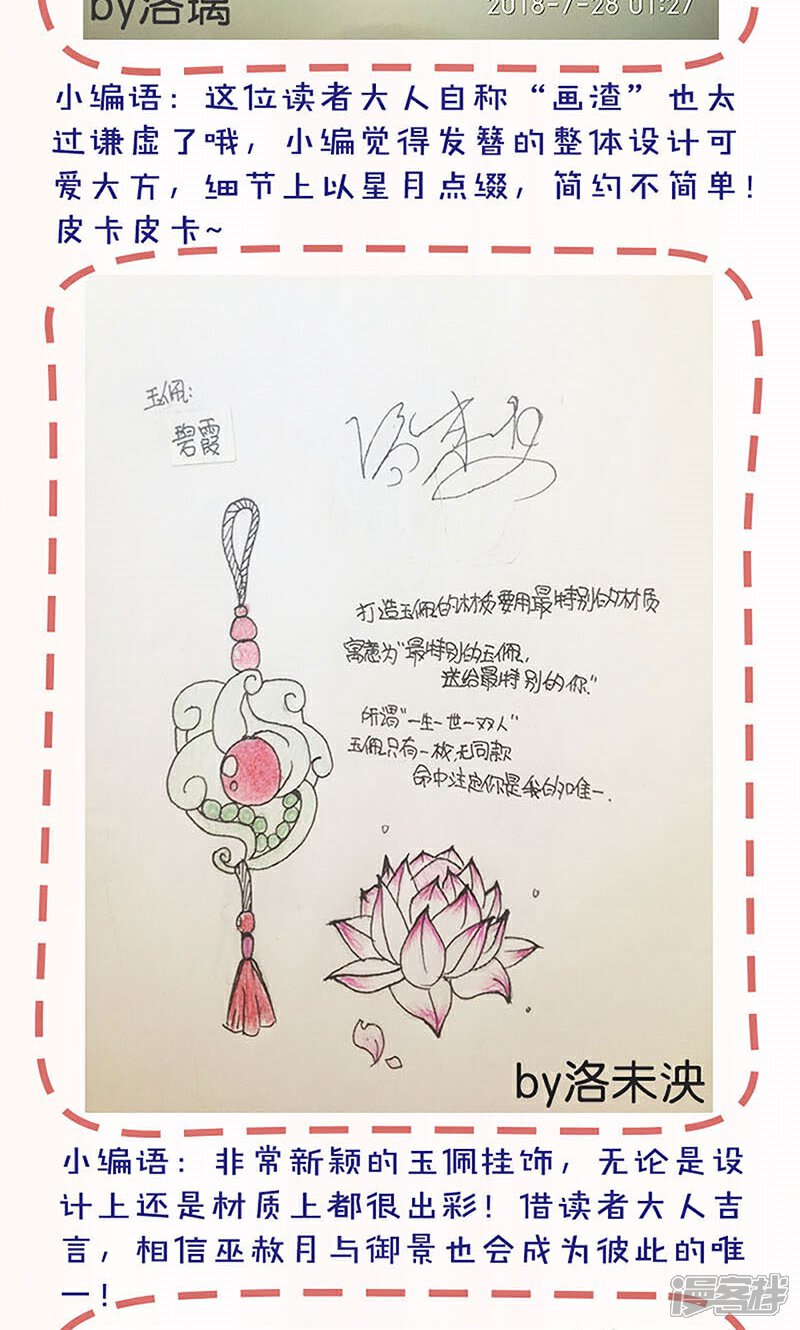 by洛璃
2018-7-28 01:27
小编语：这位读者大人自称“画渣”也太
过谦虚了哦，小编觉得发簪的整体设计可
爱大方，细节上以星月点缀，简约不简单！
皮卡皮卡~
玉佩：
碧霞
洛未央
打造玉佩的材质要用最特别的材质
寓意为“最特别的玉佩，
送给最特别的你”
所谓“一生一世一双人”
玉佩只有一枚，无同款
命中注定你是我的唯一．
by洛未泱
小编语：非常新颖的玉佩挂饰，无论是设
计上还是材质上都很出彩！借读者大人吉
言，相信巫赦月与御景也会成为彼此的唯
一！
漫客栈